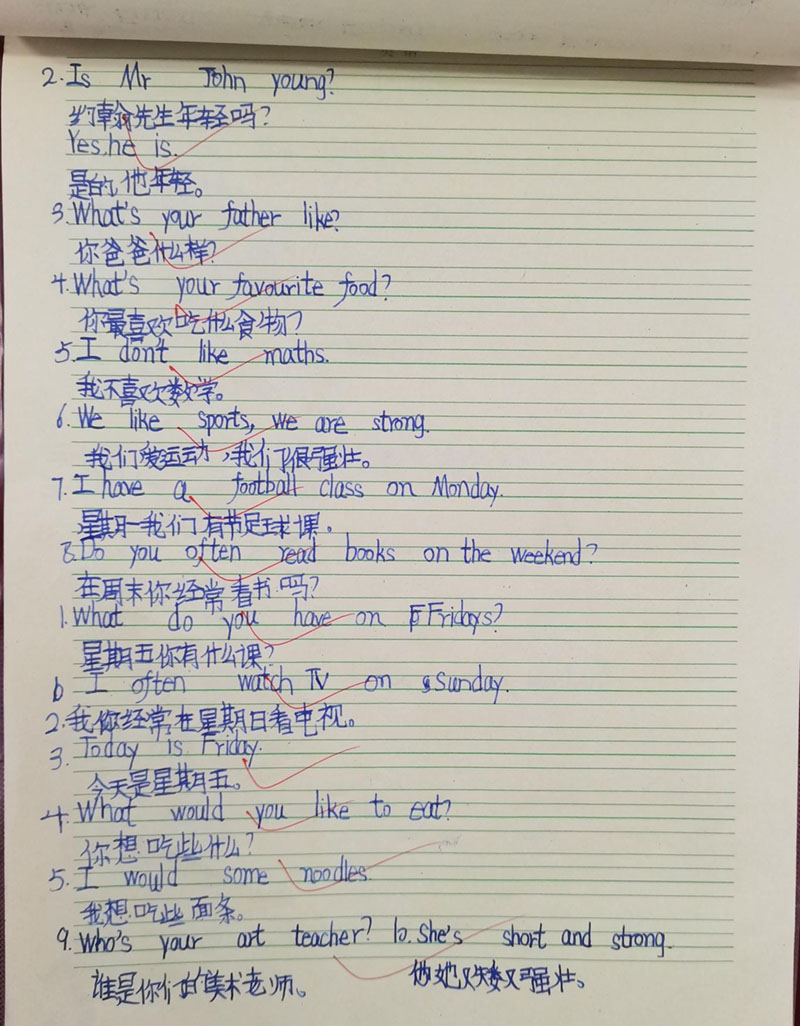 2. Is Mr John young?
约翰先生年轻吗?
Yes, he is.
是的,他年轻。
3. What's your father like?
你爸爸什么样?
4. What's your favourite food?
你最喜欢吃什么食物?
5. I don't like maths.
我不喜欢数学。
6. We like sports, we are strong.
我们爱运动,我们很强壮。
7. I have a football class on Monday.
星期一我们有节足球课。
8. Do you often read books on the weekend?
在周末你经常看书吗?
1. What do you have on Fridays?
星期五你有什么课?
6 I often watch TV on Sunday.
2. 我你经常在星期日看电视。
3. Today is Friday.
今天是星期五。
4. What would you like to eat?
你想吃些什么?
5. I would some noodles.
我想吃些面条。
9. Who's your art teacher? 10. She's short and strong.
谁是你们的美术老师。 她又矮又强壮。